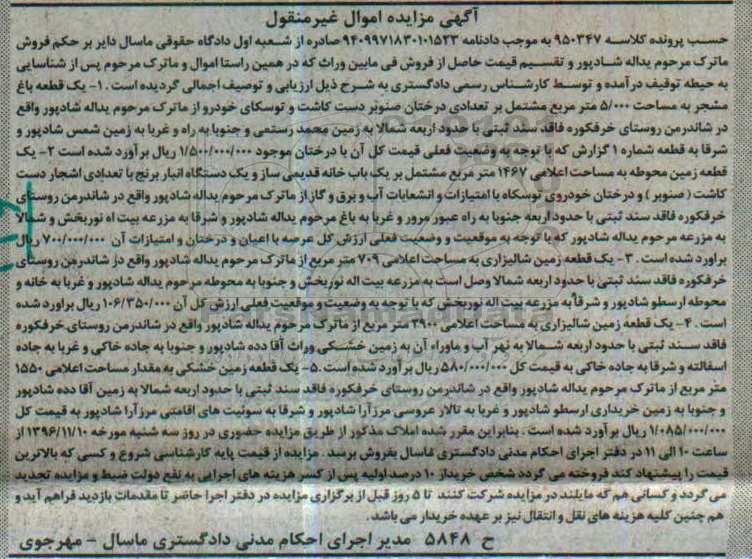 آگهی مزایده اموال غیرمنقول
حسب پرونده کلاسه ۹۵۰۳۴۷ به موجب دادنامه ۹۴۰۹۹۷۱۸۳۰۱۰۱۵۲۳ صادره از شعبه اول دادگاه حقوقی ماسال دایر بر حکم فروش
ماترک مرحوم یداله شادپور و تقسیم قیمت حاصل از فروش فی مابین وراث که در همین راستا اموال و ماترک مرحوم پس از شناسایی
به حیطه توقیف درآمده و توسط کارشناس رسمی دادگستری به شرح ذیل ارزیابی و توصیف اجمالی گردیده است . ۱- یک قطعه باغ
مشجر به مساحت ۵/۰۰۰ متر مربع مشتمل بر تعدادی درختان صنوبر دست کاشت و توسکای خودرو از ماترک مرحوم یداله شادپور واقع
در شاندرمن روستای خرفکوره فاقد سند ثبتی با حدود اربعه شمالا به زمین محمد رستمی و جنوبا به راه و غربا به زمین شمس شادپور و
شرقا به قطعه شماره ۱ گزارش که با توجه به وضعیت فعلی قیمت کل آن با درختان موجود ۱/۵۰۰/۰۰۰/۰۰۰ ریال برآورد شده است ۲- یک
قطعه زمین محوطه به مساحت اعلامی ۱۴۶۷ متر مربع مشتمل بر یک باب خانه قدیمی ساز و یک دستگاه انبار برنج با تعدادی اشجار دست
کاشت ( صنوبر ) و درختان خودروی توسکاه با امتیازات و انشعابات آب و برق و گاز از ماترک مرحوم یداله شادپور واقع در شاندرمن روستای
خرفکوره فاقد سند ثبتی با حدود اربعه جنوبا به راه عبور مرور و غربا به باغ مرحوم یداله شادپور و شرقا به مزرعه بیت اه نوربخش و شمالا
به مزرعه مرحوم یداله شادپور که با توجه به موقعیت و وضعیت فعلی ارزش کل عرصه با اعیان و درختان و امتیازات آن ۷۰۰/۰۰۰/۰۰۰ ریال
براورد شده است . ۳- یک قطعه زمین شالیزاری به مساحت اعلامی ۷۰۹ متر مربع از ماترک مرحوم یداله شادپور واقع در شاندرمن روستای
خرفکوره فاقد سند ثبتی با حدود اربعه شمالا وصل است به مزرعه بیت اله نوربخش و جنوبا به محوطه مرحوم یداله شادپور و غربا به خانه و
محوطه ارسطو شادپور و شرقاً به مزرعه بیت اله نوربخش که با توجه به وضعیت و موقعیت فعلی ارزش کل آن ۱۰۶/۳۵۰/۰۰۰ ریال برآورد شده
است . ۴- یک قطعه زمین شالیزاری به مساحت اعلامی ۲۹۰۰ متر مربع از ماترک مرحوم یداله شادپور واقع در شاندرمن روستای خرفکوره
فاقد سند ثبتی با حدود اربعه شمالا به نهر آب و ماوراء آن به زمین خشکی وراث آقا دده شادپور و جنوبا به جاده خاکی و غربا به جاده
اسفالته و شرقا به جاده خاکی به قیمت کل ۵۸۰/۰۰۰/۰۰۰ ریال برآورد شده است .۵- یک قطعه زمین خشکی به مقدار مساحت اعلامی ۱۵۵۰
متر مربع از ماترک مرحوم یداله شادپور واقع در شاندرمن روستای خرفکوره فاقد سند ثبتی با حدود اربعه شمالا به زمین آقا دده شادپور
و جنوبا به زمین خریداری ارسطو شادپور و غربا به تالار عروسی مرزآرا شادپور و شرقا به سوئیت های اقامتی مرزآرا شادپور به قیمت کل
۱/۰۸۵/۰۰۰/۰۰۰ ریال برآورد شده است . بنابراین مقرر شده املاک مذکور از طریق مزایده حضوری در روز سه شنبه مورخه ۱۳۹۶/۱۱/۱۰ از
ساعت ۱۰ الی ۱۱ در دفتر اجرای احکام مدنی دادگستری ماسال بفروش برسد . مزایده از قیمت پایه کارشناسی شروع و کسی که بالاترین
قیمت را پیشنهاد کند فروخته می گردد شخص خریدار ۱۰ درصد اولیه پس از کسر هزینه های اجرایی به نفع دولت ضبط و مزایده تجدید
می گردد و کسانی هم که مایلند در مزایده شرکت کنند تا ۵ روز قبل از برگزاری مزایده در دفتر اجرا حاضر تا مقدمات بازدید فراهم آید و
هم چنین کلیه هزینه های نقل و انتقال نیز بر عهده خریدار می باشد .
ح ۵۸۴۸ مدیر اجرای احکام مدنی دادگستری ماسال - مهرجوی